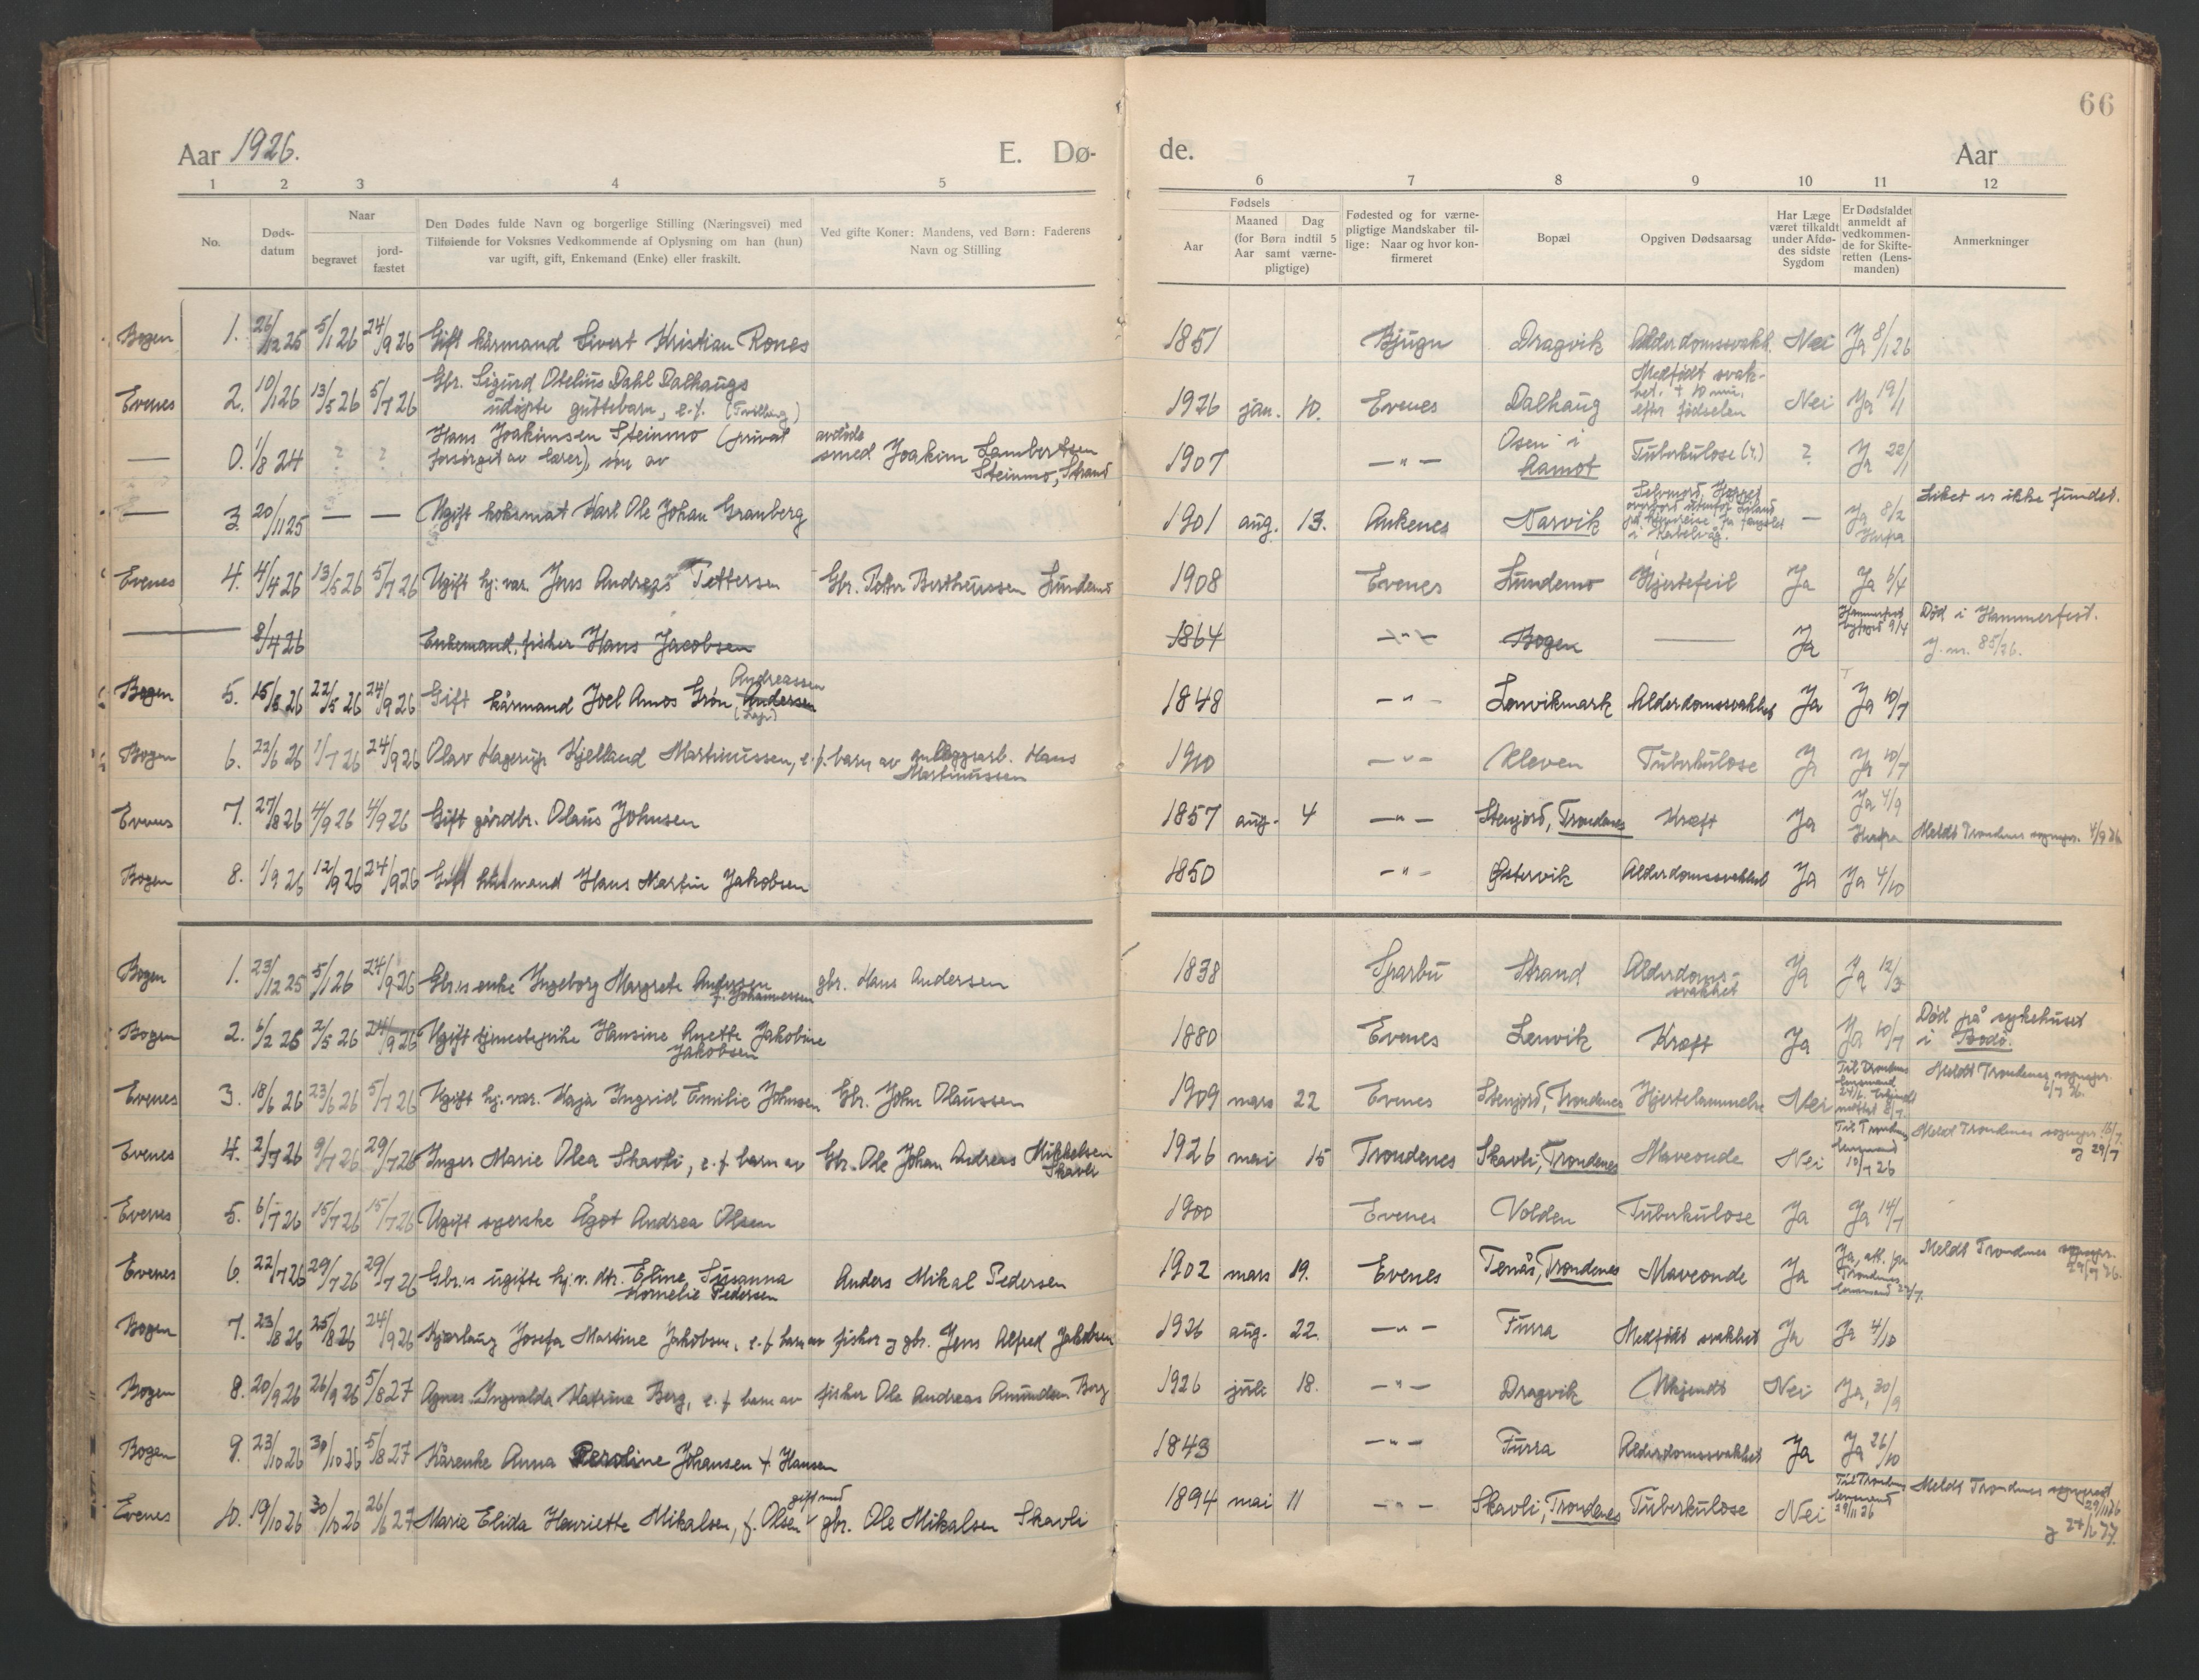 66
Aar 1926. E. Dø-
de. Aar
1 2 3 4 5
6 7 8 9 10 11 12
No.
Døds-
datum
Naar
begravet
jord-
fæstet
Den Dødes fulde Navn og borgerlige Stilling (Næringsvei) med
Tilføiende for Voksnes Vedkommende af Oplysning om han (hun)
var ugift, gift, Enkemand (Enke) eller fraskilt.
Ved gifte Koner: Mandens, ved Børn: Faderens
Navn og Stilling
Fødsels
Aar
Maaned Dag
(for Børn indtil 5
Aar samt værne-
pligtige)
Fødested og for værne-
pligtige Mandskaber til-
lige: Naar og hvor kon-
firmeret
Bopæl
Opgiven Dødsaarsag
Har Læge
været tilkaldt
under Afdø-
des sidste
Sygdom
Er Dødsfaldet
anmeldt af
vedkommen-
de for Skifte-
retten (Lens-
manden)
Anmerkninger
Bogen 1. 26/12 25 5/1 26 24/9 26 Gift kårmand Sivert Kristian Rones 1851 Bjugn Dragvik Alderdomssvakh. Nei Ja 8/1 26
Evenes 2. 10/1 26 13/5 26 5/7 26 Gbr. Sigurd Otelius Dahl Dalhaugs
udøpte guttebarn, e.f. (Tvilling) 1926 jan. 10. Evenes Dalhaug Medfødt svak-
het. + 10 min.
efter fødselen Nei Ja 19/1
— 0. 1/8 24 ? ? Hans Joakimsen Steinmo (privat
forsørget av lærer), søn av avdøde
smed Joakim Lambertsen
Steinmo, Strand 1907 —"— Osen i
Aamot Tuberkulose (?) ? Ja 22/1
— 3. 20/11 25 — — Ugift koksmat Karl Ole Johan Granberg 1901 aug. 13. Ankenes Narvik Selvmord, Hoppet
overbord utenfor
på hjemreise fra fengslet
i Kabelvåg. — Ja 8/2
Herfra Liket er ikke fundet.
Evenes 4. 4/4 26 13/5 26 5/7 26 Ugift hj. var. Jens Andreas Pettersen Gbr. Petter Bertheussen Lundemo 1908 Evenes Lundemo Hjertefeil Ja Ja 6/4
— 8/4 26 Enkemand, fisker Hans Jacobsen 1864 —"— Bogen — Ja Hammerfest
byfogd 9/4 Død i Hammerfest.
J. nr. 85/26.
Bogen 5. 15/5 26 22/5 26 24/9 26 Gift kårmand Joel Amos Grøn, Andersen Andreassen
(Lapp) 1848 —"— Lenvikmark Alderdomssvakhet Ja Ja 10/7
Bogen 6. 22/6 26 1/7 26 24/9 26 Olav Hagerup Kjelland Martinussen, e.f. barn av anleggsarb. Hans
Martinussen 1910 —"— Kleven Tuberkulose Ja Ja 10/7
Evenes 7. 27/8 26 4/9 26 4/9 26 Gift gårdbr. Olaus Johnsen 1857 aug. 4 —"— Stenjord, Trondenes Kræft Ja Ja 4/9
Herfra Meldt Trondenes sognepr. 4/9 26
Bogen 8. 1/9 26 12/9 26 24/9 26 Gift husmand Hans Martin Jakobsen 1850 —"— Østervik Alderdomssvakhet Ja Ja 4/10
Bogen 1. 23/12 25 5/1 26 24/9 26 Gbr.s enke Ingeborg Margrete Andersen
f. Johannessen gbr. Hans Andersen 1838 Sparbu Strand Alderdoms-
svakhet Ja Ja 12/3
Bogen 2. 6/2 26 2/5 26 24/9 26 Ugift tjenestepike Hansine Anette Jakobine
Jakobsen 1880 Evenes Lenvik Kræft Ja Ja 10/7 Død på sykehuset
i Bodø.
Evenes 3. 18/6 26 23/6 26 5/7 26 Ugift hj. var. Kaja Ingrid Emilie Johnsen Gbr. John Olaussen 1909 mars 22 Evenes Stenjord, Trondenes Hjertelammelse Nei Til Trondenes
lensmand Meldt Trondenes sognepr.
Evenes 4. 2/7 26 9/7 26 29/7 26 Inger Marie Olea Skavli, e.f. barn av Gbr. Ole Johan Andreas Mikkelsen
Skavli 1926 mai 15 Trondenes Skavli, Trondenes Maveonde Nei Til Trondenes
lensmand
10/7 26 Meld Trondenes sognepr. 16/7
og 29/7
Evenes 5. 6/7 26 15/7 26 15/7 26 Ugift syerske Ågot Andrea Olsen 1900 Evenes Volden Tuberkulose Ja Ja 14/7
Evenes 6. 22/7 26 29/7 26 29/7 26 Gbr.s ugifte hj. v. dtr. Eline Susanna
Kornelie Pedersen Anders Mikal Pedersen 1902 mars 19. Evenes Tenås, Trondenes Maveonde Ja Ja, att. fra
Trondenes
lensmand 27/7. Meldt Trondenes sognepr.
29/7 26.
Bogen 7. 23/8 26 25/8 26 24/9 26 Hjørlaug Josefa Martine Jakobsen, e.f. barn av fisker og gbr. Jens Alfred Jakobsen 1926 aug. 22. —"— Furra Medfødt svakhet Ja Ja 4/10
Bogen 8. 20/9 26 26/9 26 5/8 27 Agnes Ingvalda Katrine Berg, e.f. barn av fisker Ole Andreas Amundsen Berg 1926 juli 18. —"— Dragvik Ukjendt Nei Ja, 30/9
Bogen 9. 23/10 26 30/10 26 5/8 27 Kårenke Anna Peroline Johansen f. Hansen 1843 —"— Furra Alderdomssvakhet Ja Ja 26/10
Evenes 10. 19/10 26 30/10 26 26/6 27 Marie Elida Henriette Mikalsen, f. Olsen gift med gbr. Ole Mikalsen Skavli 1894 mai 11 —"— Skavli, Trondenes Tuberkulose Nei Til Trondenes
lensmand
29/11 26 Meldt Trondenes sogneprest
29/11 26